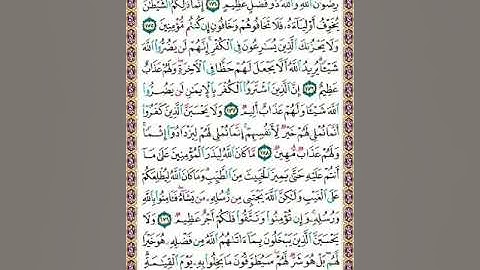 رِضْوَٰنَ ٱللَّهِ وَٱللَّهُ ذُو فَضْلٍ عَظِيمٍ ١٧٤ إِنَّمَا ذَٰلِكُمُ ٱلشَّيْطَٰنُ
يُخَوِّفُ أَوْلِيَآءَهُۥ فَلَا تَخَافُوهُمْ وَخَافُونِ إِن كُنتُم مُّؤْمِنِينَ ١٧٥
وَلَا يَحْزُنكَ ٱلَّذِينَ يُسَٰرِعُونَ فِى ٱلْكُفْرِ ۚ إِنَّهُمْ لَن يَضُرُّوا۟ ٱللَّهَ
شَيْـًٔا ۗ يُرِيدُ ٱللَّهُ أَلَّا يَجْعَلَ لَهُمْ حَظًّا فِى ٱلْءَاخِرَةِ ۖ وَلَهُمْ عَذَابٌ
عَظِيمٌ ١٧٦ إِنَّ ٱلَّذِينَ ٱشْتَرَوُا۟ ٱلْكُفْرَ بِٱلْإِيمَٰنِ لَن يَضُرُّوا۟
ٱللَّهَ شَيْـًٔا وَلَهُمْ عَذَابٌ أَلِيمٌ ١٧٧ وَلَا يَحْسَبَنَّ ٱلَّذِينَ كَفَرُوٓا۟
أَنَّمَا نُمْلِى لَهُمْ خَيْرٌ لِّأَنفُسِهِمْ ۚ إِنَّمَا نُمْلِى لَهُمْ لِيَزْدَادُوٓا۟ إِثْمًا ۚ
وَلَهُمْ عَذَابٌ مُّهِينٌ ١٧٨ مَّا كَانَ ٱللَّهُ لِيَذَرَ ٱلْمُؤْمِنِينَ عَلَىٰ مَآ
أَنتُمْ عَلَيْهِ حَتَّىٰ يَمِيزَ ٱلْخَبِيثَ مِنَ ٱلطَّيِّبِ ۗ وَمَا كَانَ ٱللَّهُ لِيُطْلِعَكُمْ
عَلَى ٱلْغَيْبِ وَلَٰكِنَّ ٱللَّهَ يَجْتَبِى مِن رُّسُلِهِۦ مَن يَشَآءُ ۖ فَـَٔامِنُوا۟ بِٱللَّهِ
وَرُسُلِهِۦ ۚ وَإِن تُؤْمِنُوا۟ وَتَتَّقُوا۟ فَلَكُمْ أَجْرٌ عَظِيمٌ ١٧٩ وَلَا
يَحْسَبَنَّ ٱلَّذِينَ يَبْخَلُونَ بِمَآ ءَاتَىٰهُمُ ٱللَّهُ مِن فَضْلِهِۦ هُوَ خَيْرًا
لَّهُم ۖ بَلْ هُوَ شَرٌّ لَّهُمْ ۖ سَيُطَوَّقُونَ مَا بَخِلُوا۟ بِهِۦ يَوْمَ ٱلْقِيَٰمَةِ ۗ